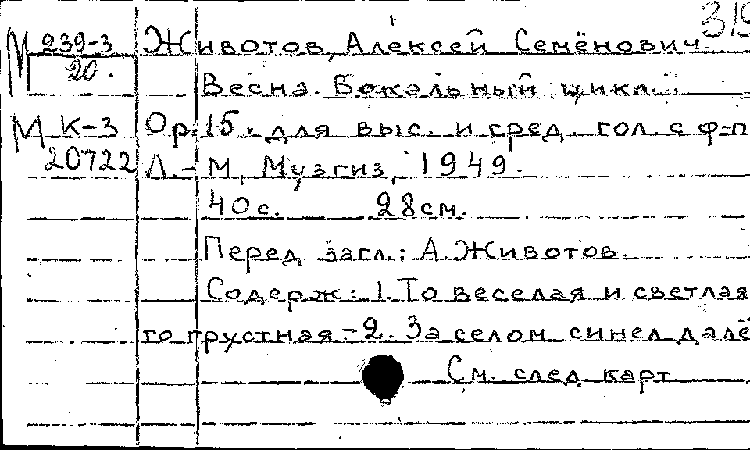 319
М 239-3 Животов, Алексей Семёнович
20. Весна. Вокальный цикл.
М К-3 Ор. 15. для выс. и сред. гол. с ф-п
20722 Л.-М, Музгиз, 1949.
40 с. 28 см.
Перед загл.: А. Животов.
Содерж: 1. То веселая и светлая
то грустная - 2. За селом синел далё
См. след карт